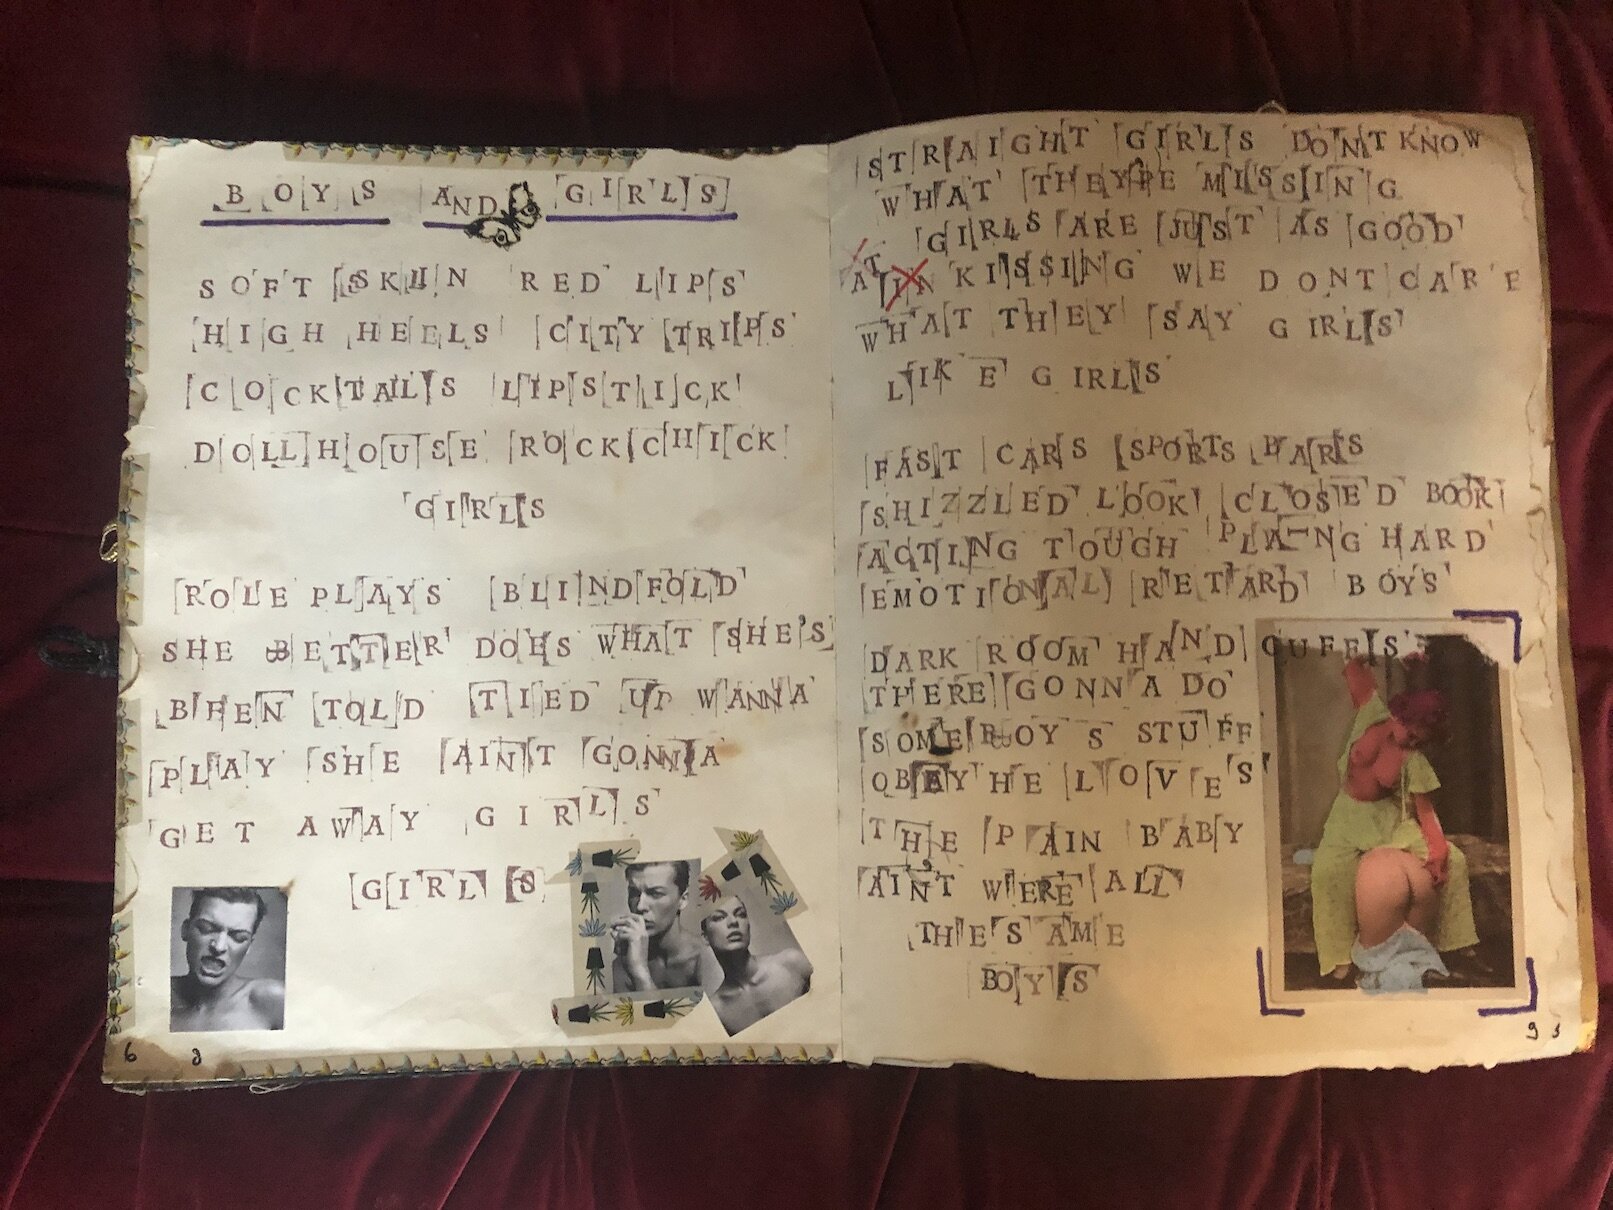 BOYS AND GIRLS
SOFT SKIN RED LIPS
HIGH HEELS CITY TRIPS
COCKTAILS LIPSTICK
DOLLHOUSE ROCK CHICK
GIRLS
ROLE PLAYS BLINDFOLD
SHE BETTER DOES WHAT SHE'S
BEEN TOLD TIED UP WANNA
PLAY SHE AINT GONNA
GET AWAY GIRLS
GIRLS
6
STRAIGHT GIRLS DONT KNOW
WHAT THEYRE MISSING
GIRLS ARE JUST AS GOOD
AT IN KISSING WE DONT CARE
WHAT THEY SAY GIRLS
LIKE GIRLS
FAST CARS SPORTS BARS
SHIZZLED LOOK CLOSED BOOK
ACTING TOUGH HARD
EMOTIONAL RETARD BOYS
DARK ROOM HAND CUFFS
THERE GONNA DO
SOME BOYS STUFF
OBEY HE LOVES
THE PAIN BABY
AIN'T WERE ALL
THE SAME
BOYS